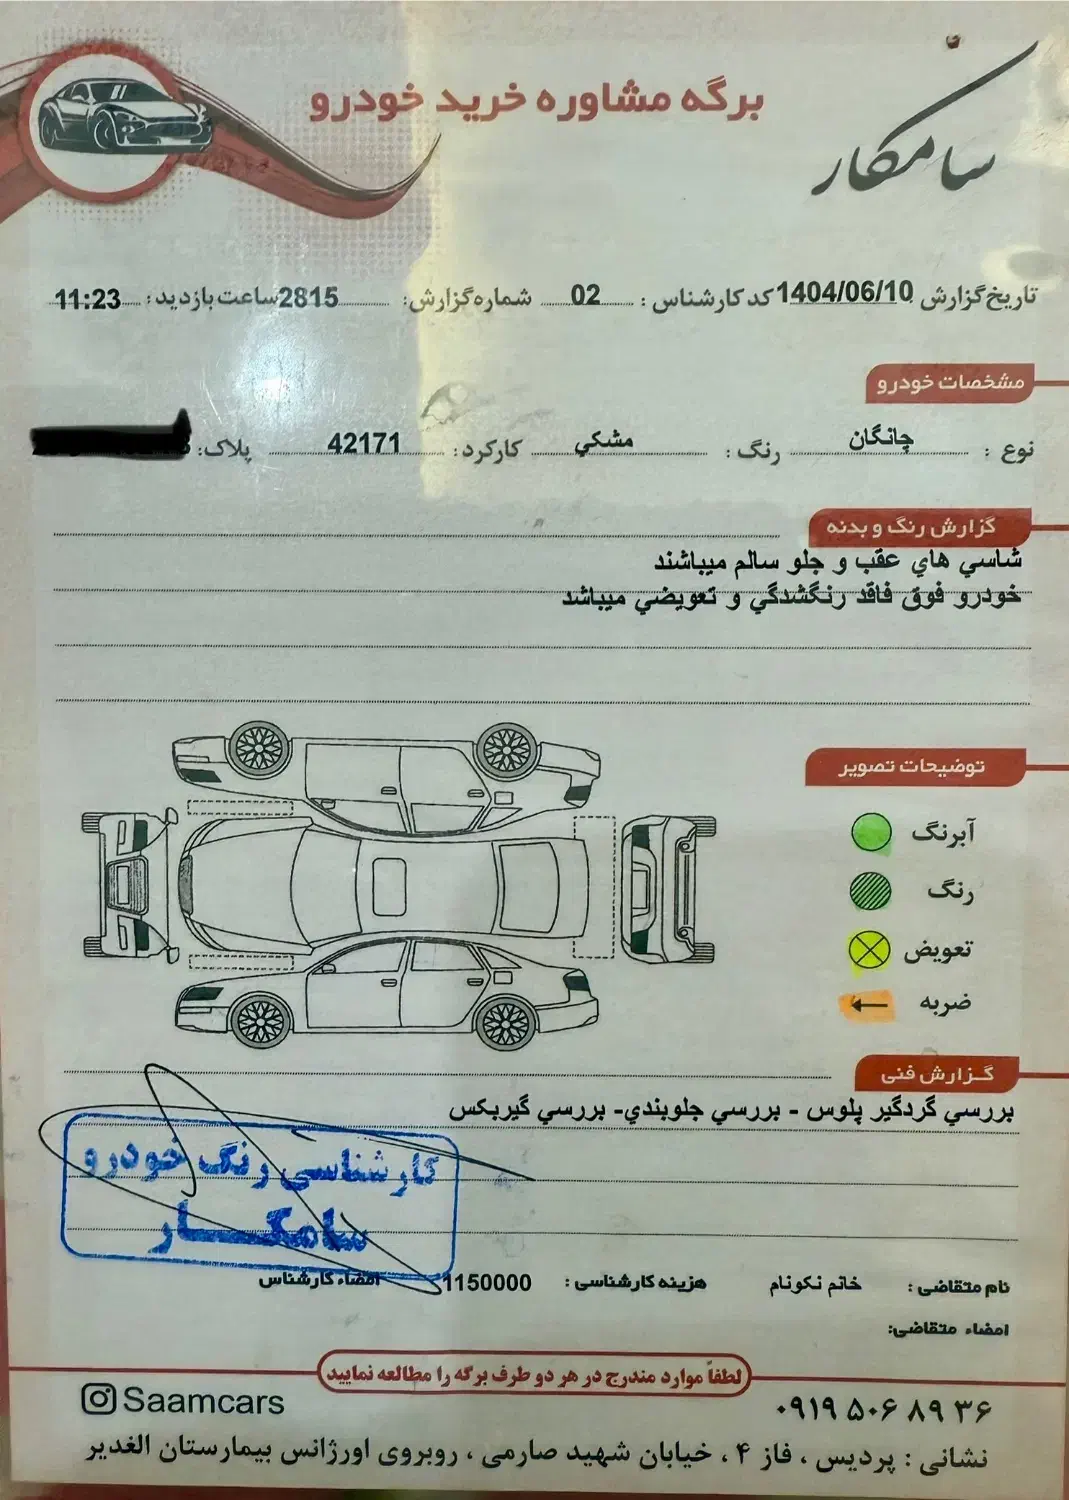 برگه مشاوره خرید خودرو
سامکار
تاریخ گزارش 1404/06/10 کد کارشناس : 02 شماره گزارش: 2815 ساعت بازدید: 11:23
مشخصات خودرو
نوع : چانگان رنگ : مشكي کارکرد: 42171 پلاک:
گزارش رنگ و بدنه
شاسي هاي عقب و جلو سالم ميباشند
خودرو فوق فاقد رنگشدگي و تعويضي ميباشد
توضیحات تصویر
آبرنگ
رنگ
تعویض
ضربه
گزارش فنی
بررسي گردگير پلوس - بررسي جلوبندي- بررسي گيربكس
کارشناسی رنگ خودرو
سامکار
نام متقاضی : خانم نكونام هزینه کارشناسی : 1150000 امضاء کارشناس
امضاء متقاضی:
لطفاً موارد مندرج در هر دو طرف برگه را مطالعه نمایید
۰۹۱۹ ۵۰۶ ۸۹ ۳۶ Saamcars
نشانی : پردیس ، فاز ۴ ، خیابان شهید صارمی ، روبروی اورژانس بیمارستان الغدیر